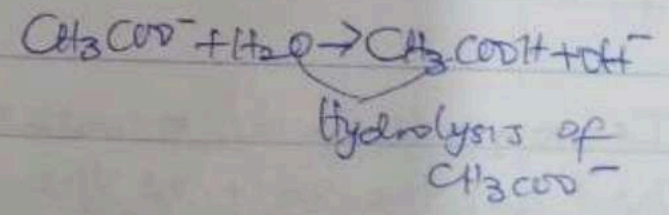 CH₃COO⁻+H₂O→CH₃COOH+OH⁻
Hydrolysis of
CH₃COO⁻